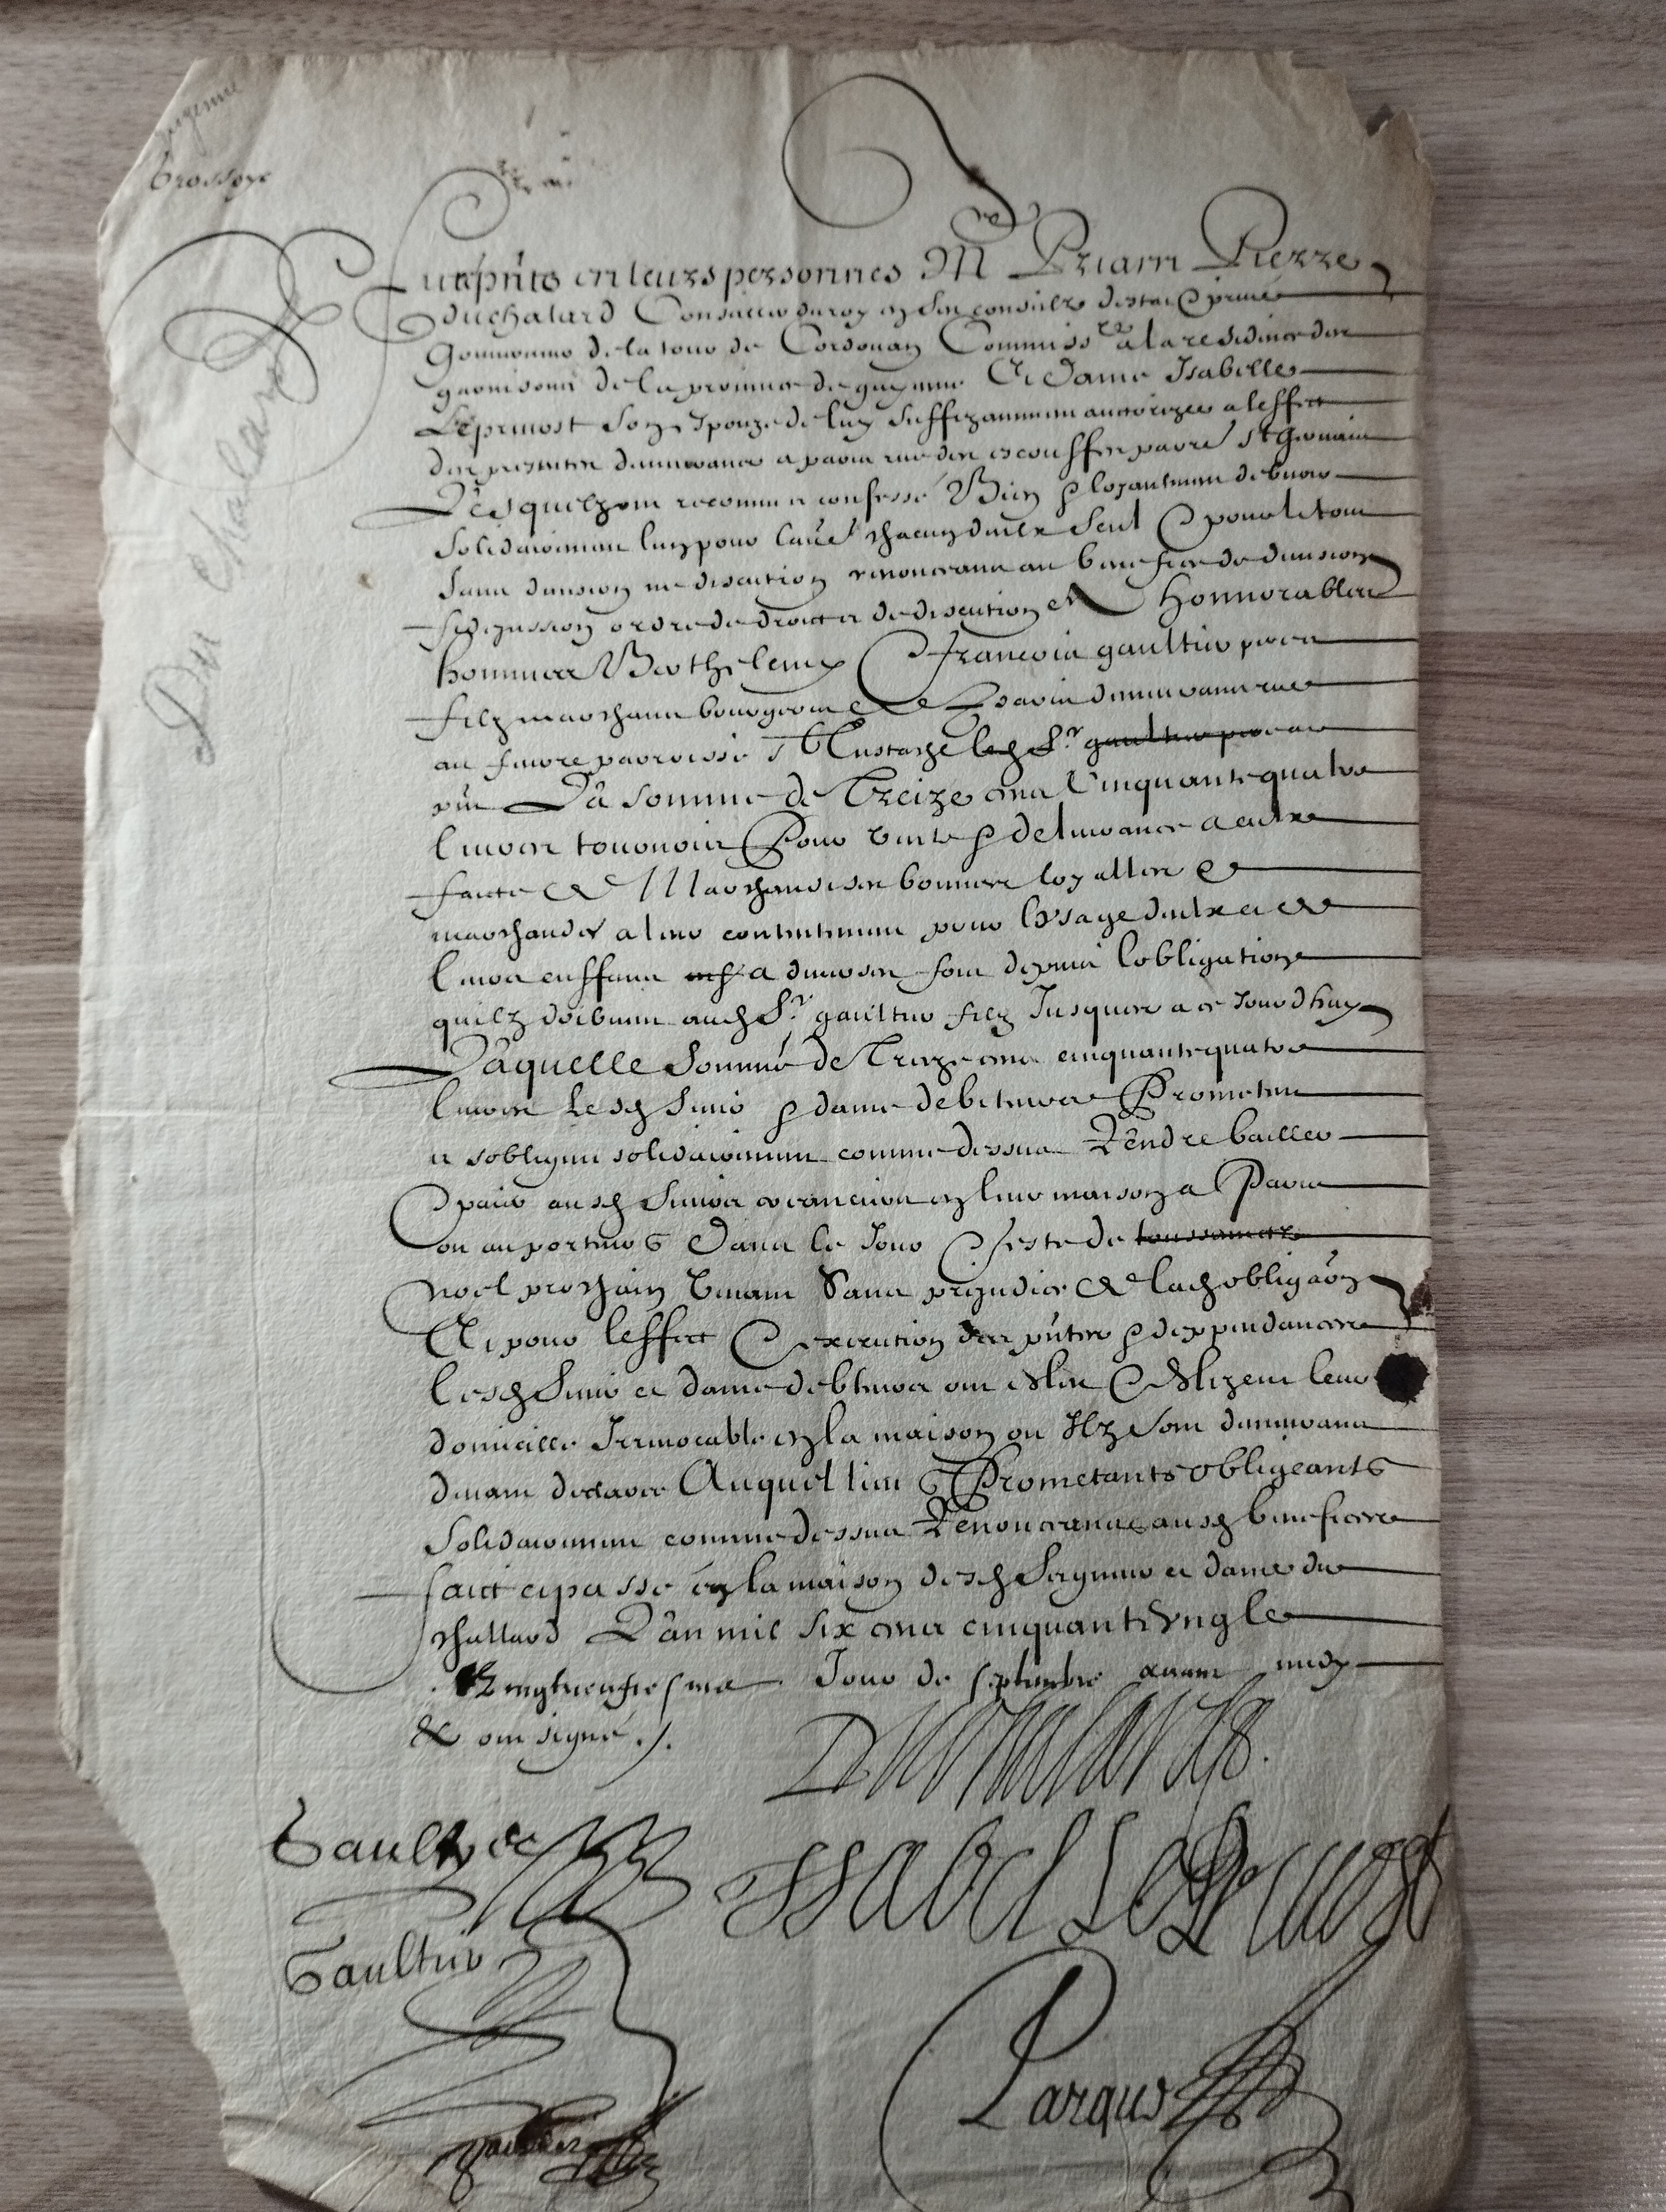 grossoye
Du Chalard
furent pñts en leurs personnes M.re Priam Pierre
duchalard Conseiller du roy en ses conseilz destat & privé
Gouverneur de la tour de Cordouan Commiss.re a la residence des
garnisons de la province de guyenne Et Dame Isabelle
Leprevost son Espouze de luy suffizamment auctorizee a leffect
des presentes demeurans a paris rue des escouffes parr. St Gervais
Lesquelz ont recongnu et confessé Bien & loyaument debvoir
solidairement lung pour laue chacun deulx seul & pour le tout
sans division ne discution renonceans au benefice de division
fidejussion ordre de droict et de discution A honnorables
hommes Berthelemy & Francois gaultier pere et
filz marchans bourgeois de Paris demeurans rue
au feurre parroisse St Eustache led. Sr gaultier pere a ce
pñt La somme de Treize cens Cinquante quatre
livres tournois Pour vente & delivrance a eulx
faicte de Marchandises bonnes loyalles &
marchandes a leur contentement pour lusage deulx et de
leurs enffans a diverses fois depuis lobligation
quilz doibvent aud. Sr gaultier filz Jusques a ce Jourdhuy
Laquelle somme de Treize cens cinquante quatre
livres lesd. sieur & dame debiteurs Promettent
et sobligent solidairement comme dessus Rendre bailler
& paier ausd. sieurs creanciers en leur maison a Paris
ou au porteur &c Dans le Jour & feste de toussainctz
Noel prochain venant Sans prejudice de lad. obligaõn
Et pour leffect & execution des pñtes & deppendances
lesd. sieur et dame debteurs ont esleu & eslizent leur
domicille Irrevocable en la maison ou Ilz sont demeurans
devant declaree Auquel lieu &c Promettants obligeants
Solidairement comme dessus Renonceans ausd. benefices
faict et passé en la maison desd. Seigneur et dame du
challard Lan mil six cens cinquante ung le
Vingtneufiesme Jour de septembre avant midy
& ont signé ./.
Duchalard
Gaultier
Issabel Le Prevost
Gaultier
Parque